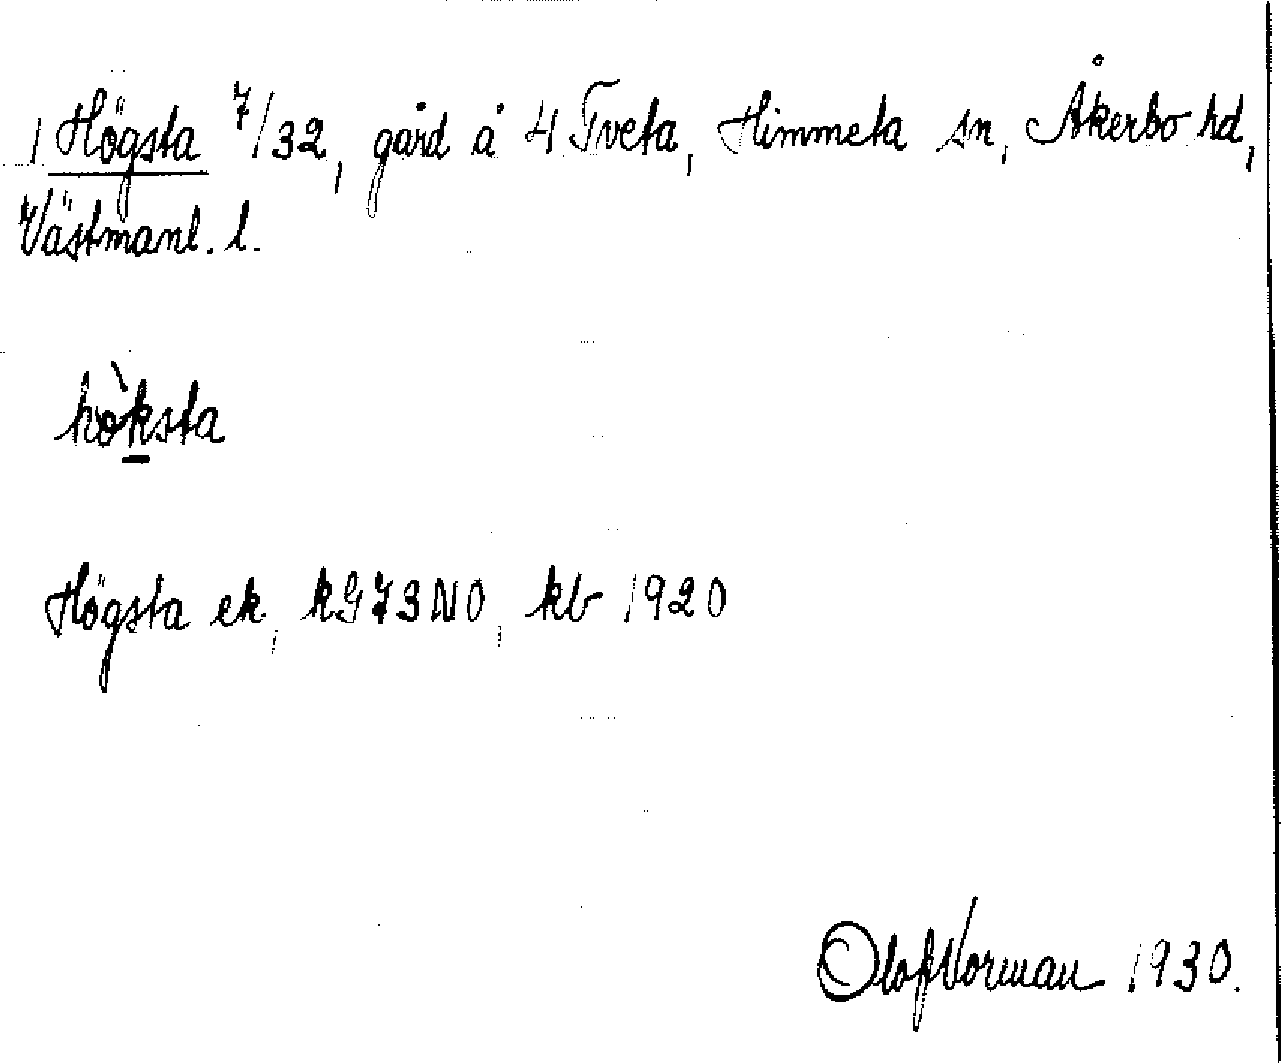 1 Högsta 7/32, gård å 4 Tveta, Himmeta sn, Åkerbo hd,
Västmanl. l.
hö̀ksta
Högsta ek, kG73NO, kb 1920
Olof Norman 1930.